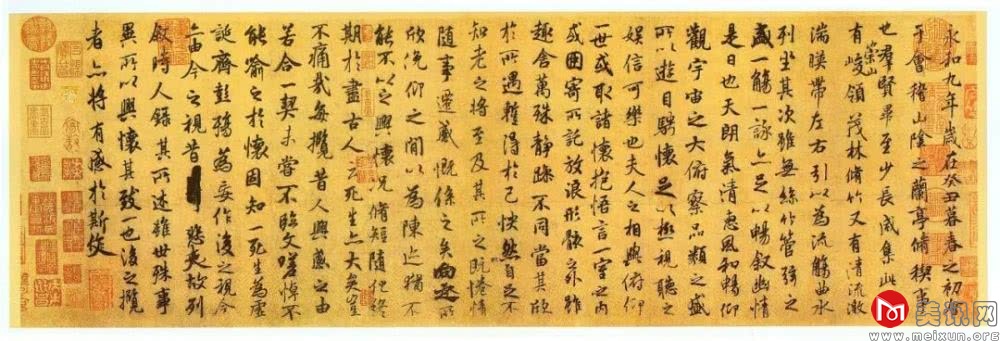 永和九年歲在癸丑暮春之初會
于會稽山陰之蘭亭脩稧事
也羣賢畢至少長咸集此地
有崇山峻領茂林脩竹又有清流激
湍暎帶左右引以為流觴曲水
列坐其次雖無絲竹管弦之
盛一觴一詠亦足以暢敘幽情
是日也天朗氣清惠風和暢仰
觀宇宙之大俯察品類之盛
所以遊目騁懷足以極視聽之
娛信可樂也夫人之相與俯仰
一世或取諸懷抱悟言一室之內
或因寄所託放浪形骸之外雖
趣舍萬殊靜躁不同當其欣
於所遇暫得於己怏然自足不
知老之將至及其所之既惓情
隨事遷感慨係之矣向之所
欣俛仰之間以為陳迹猶不
能不以之興懷況脩短隨化終
期於盡古人云死生亦大矣豈
不痛哉每攬昔人興感之由
若合一契未嘗不臨文嗟悼不
能喻之於懷固知一死生為虛
誕齊彭殤為妄作後之視今
亦由今之視昔悲夫故列
敘時人錄其所述雖世殊事
異所以興懷其致一也後之攬
者亦將有感於斯文
美讯网
www.meixun.org